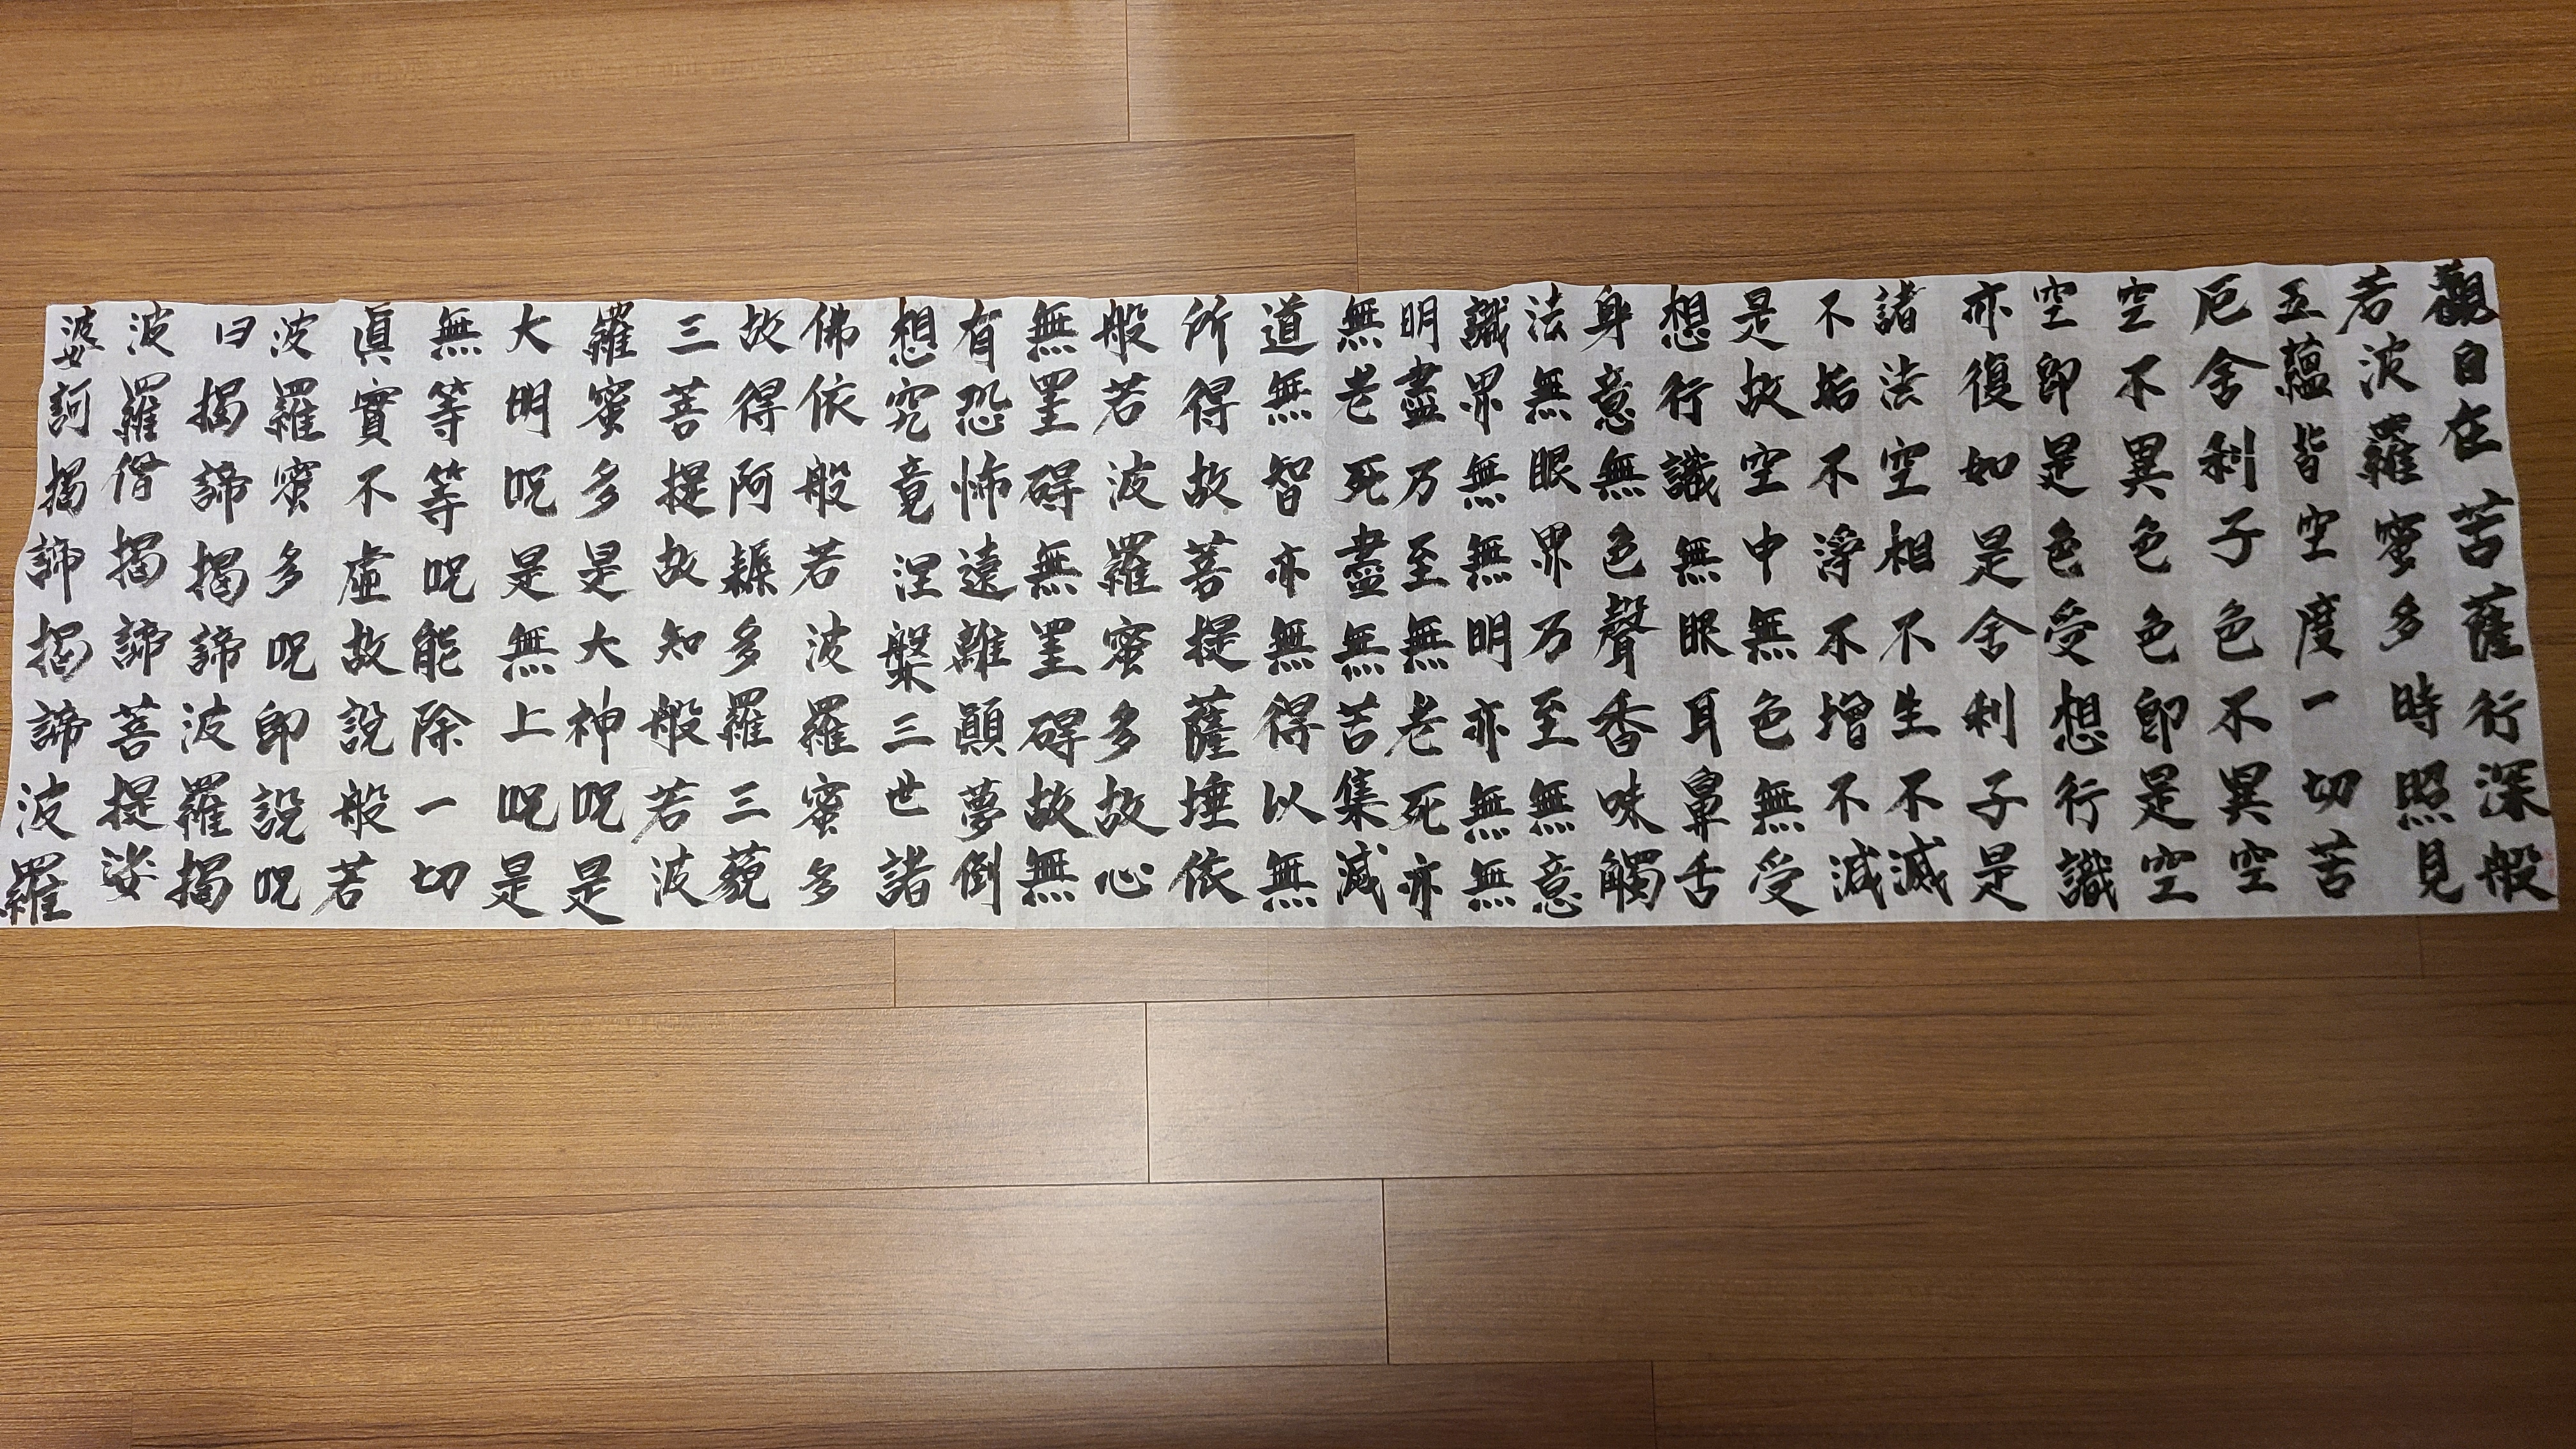 觀自在菩薩行深般
若波羅蜜多時照見
五蘊皆空度一切苦
厄舍利子色不異空
空不異色色即是空
空即是色受想行識
亦復如是舍利子是
諸法空相不生不滅
不垢不淨不增不減
是故空中無色無受
想行識無眼耳鼻舌
身意無色聲香味觸
法無眼界乃至無意
識界無無明亦無無
明盡乃至無老死亦
無老死盡無苦集滅
道無智亦無得以無
所得故菩提薩埵依
般若波羅蜜多故心
無罣碍無罣碍故無
有恐怖遠離顚夢倒
想究竟涅槃三世諸
佛依般若波羅蜜多
故得阿耨多羅三藐
三菩提故知般若波
羅蜜多是大神呪是
大明呪是無上呪是
無等等呪能除一切
眞實不虛故說般若
波羅蜜多呪即說呪
曰揭諦揭諦波羅揭
波羅僧揭諦菩提娑
婆訶揭諦揭諦波羅